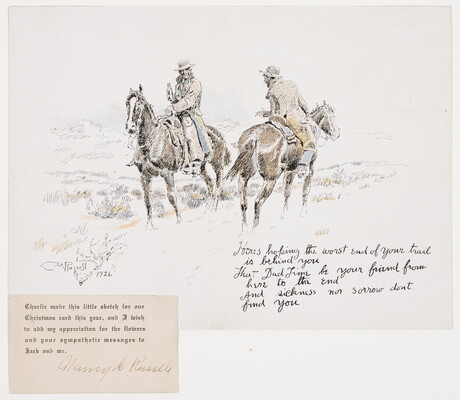 Heres hoping the worst end of your trail
is behind you
That Dad Time be your friend from
here to the End
And sickness nor sorrow dont
find you
CM Russell
1926
Charlie made this little sketch for our
Christmas card this year, and I wish
to add my appreciation for the flowers
and your sympathetic messages to
Jack and me.
Nancy C Russell